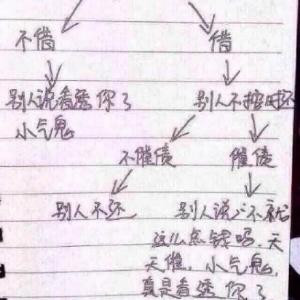 不借 借
别人说看透你了 别人不按时还
小气鬼
不催债 催债
别人不还 别人说:不就
这么点钱吗,天
天催,小气鬼,
真是看透你了